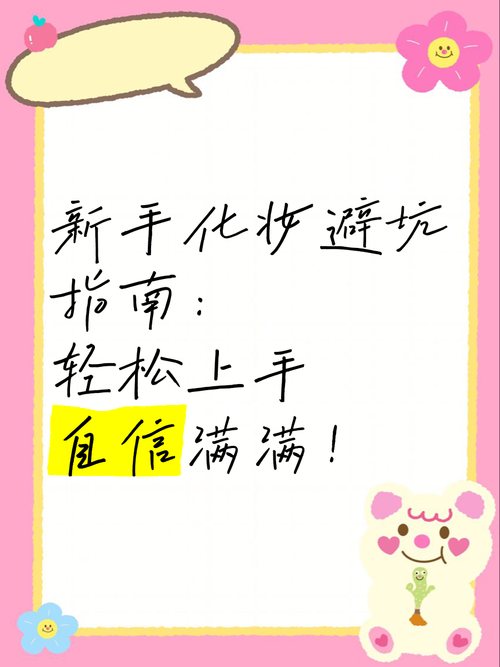 新手化妆避坑
指南：
轻松上手
自信满满！